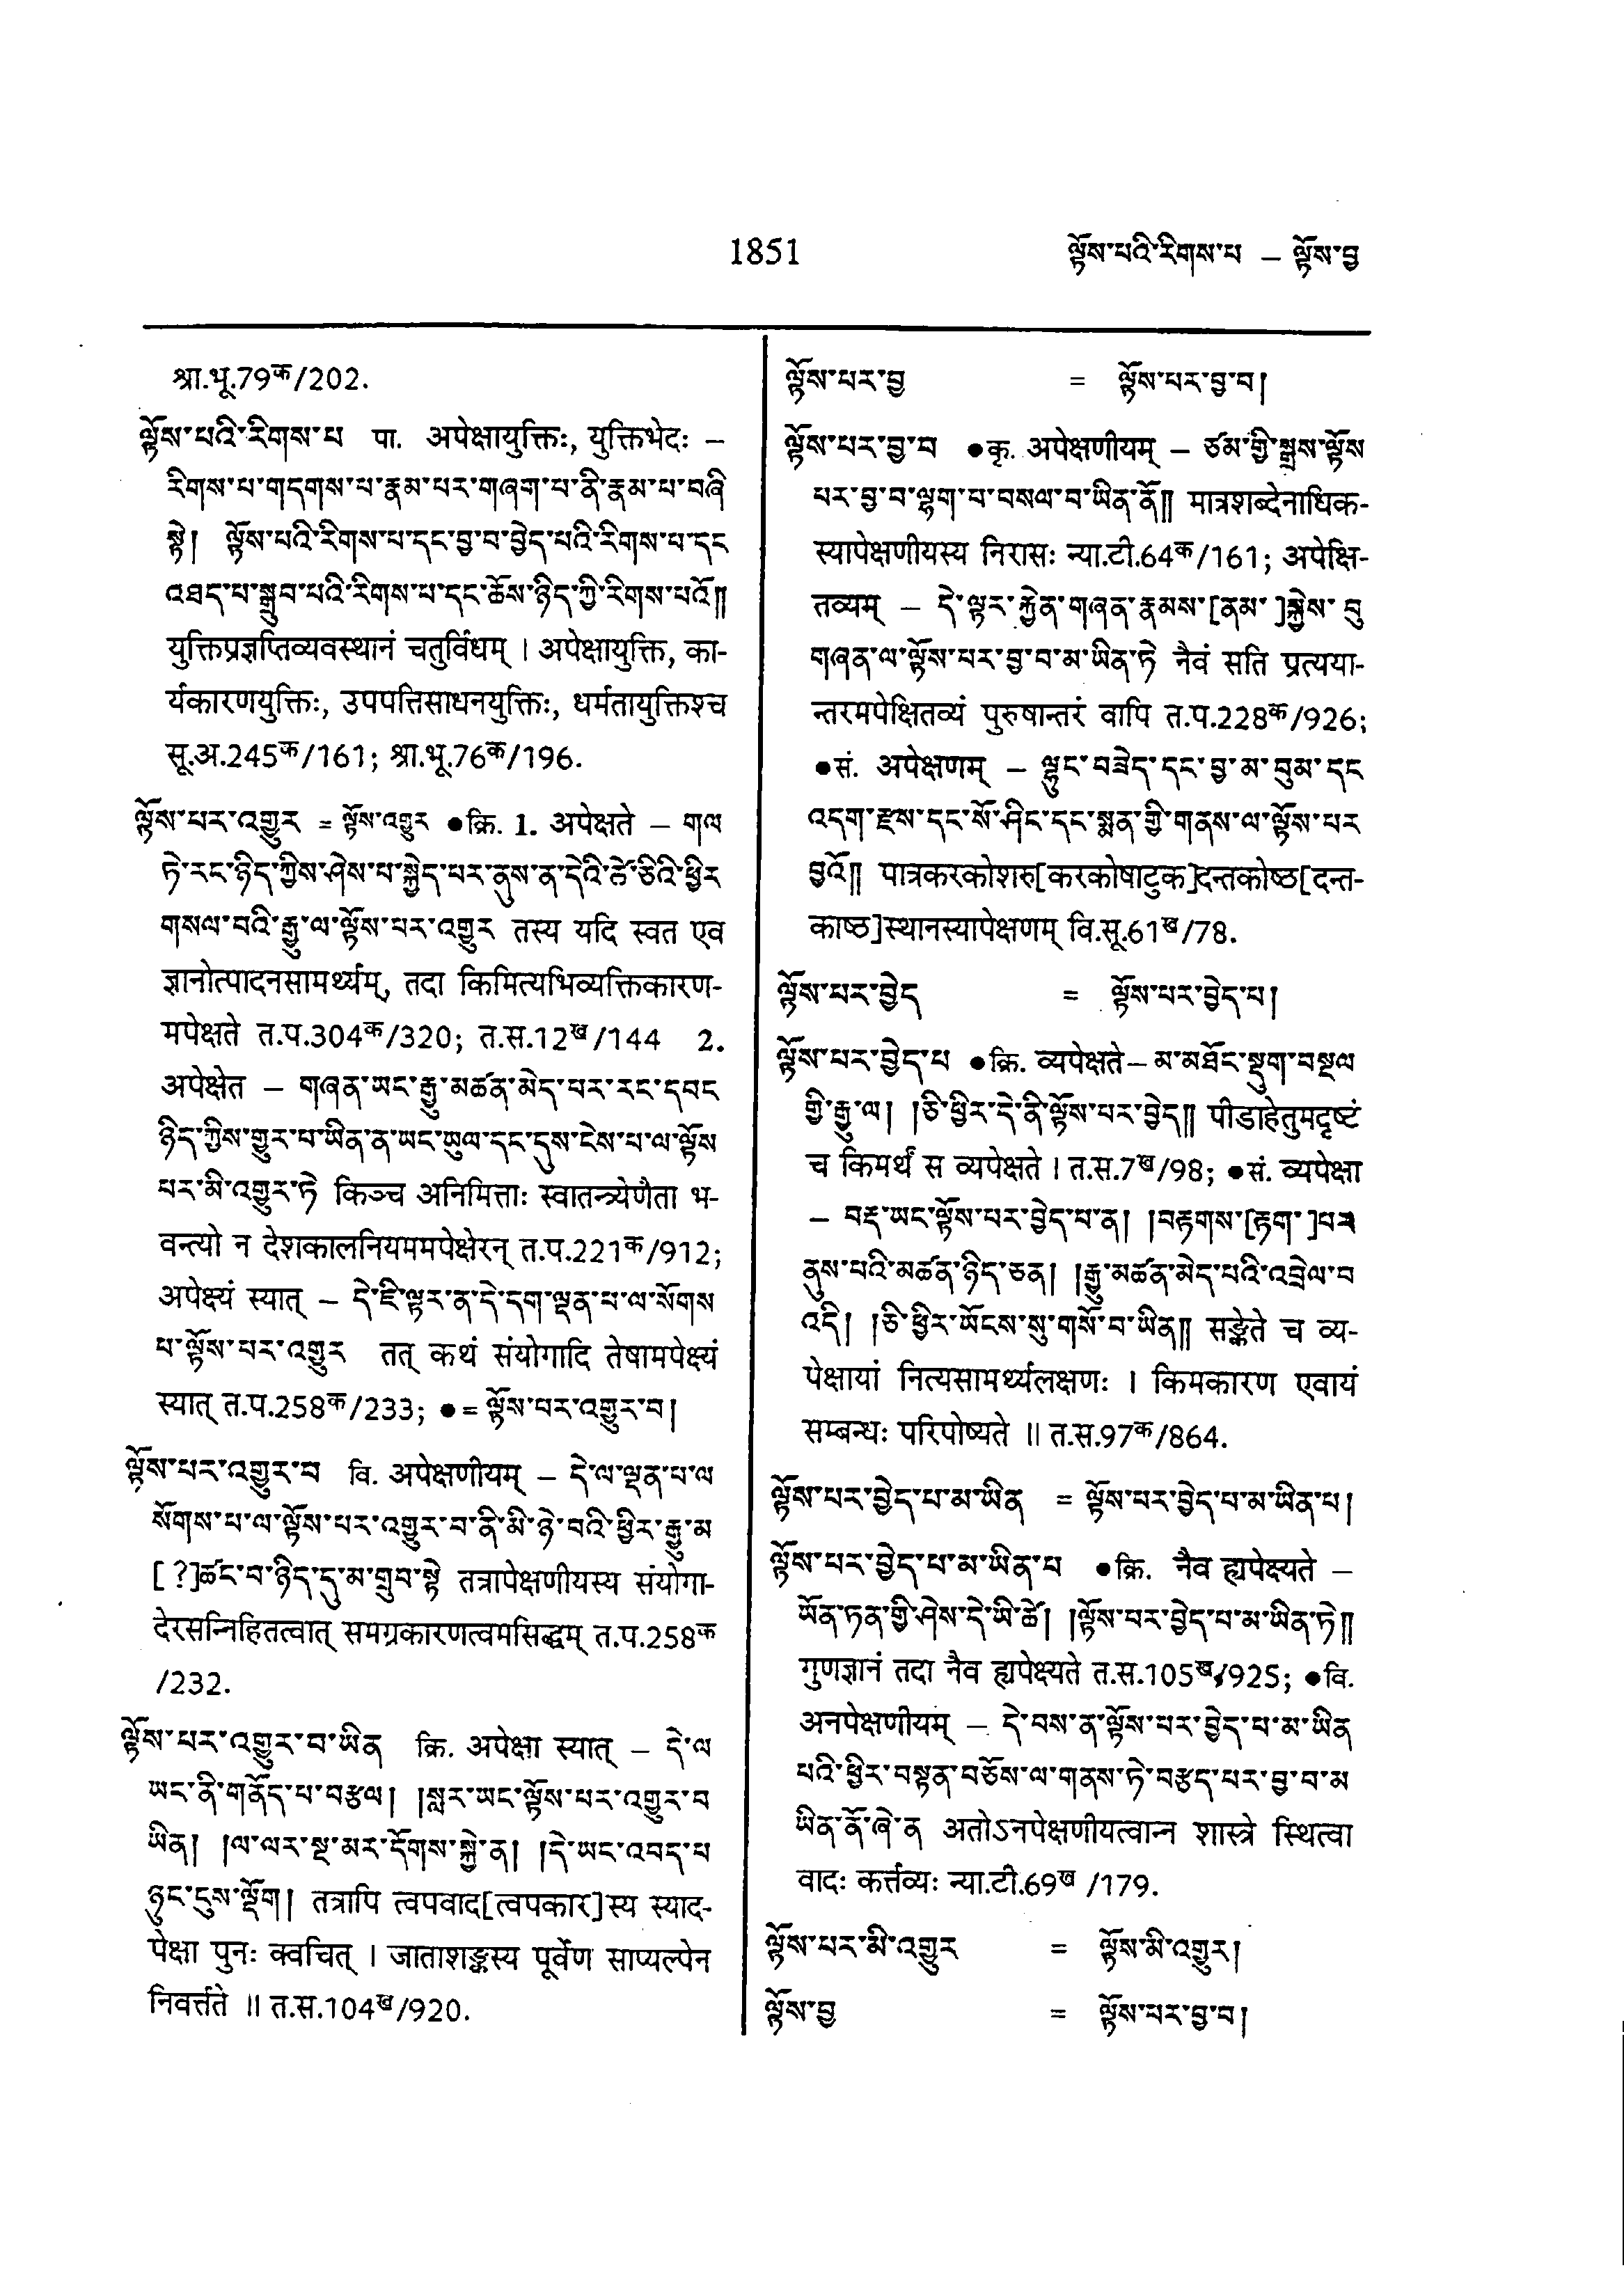 1851
ལྟོས་པའི་རིགས་པ – ལྟོས་བྱ
श्रा.भू.79क/202.
ལྟོས་པའི་རིགས་པ पा. अपेक्षायुक्तिः, युक्तिभेदः –
རིགས་པ་གདགས་པ་རྣམ་པར་གཞག་པ་ནི་རྣམ་པ་བཞི
སྟེ། ལྟོས་པའི་རིགས་པ་དང་བྱ་བ་བྱེད་པའི་རིགས་པ་དང
འཐད་པ་སྒྲུབ་པའི་རིགས་པ་དང་ཆོས་ཉིད་ཀྱི་རིགས་པའོ༎
युक्तिप्रज्ञप्तिव्यवस्थानं चतुर्विधम् । अपेक्षायुक्ति, का-
र्यकारणयुक्तिः, उपपत्तिसाधनयुक्तिः, धर्मतायुक्तिश्च
सू.अ.245क/161; श्रा.भू.76क/196.
ལྟོས་པར་འགྱུར = ལྟོས་འགྱུར ●क्रि. 1. अपेक्षते – གལ
ཏེ་རང་ཉིད་ཀྱིས་ཤེས་པ་སྐྱེད་པར་ནུས་ན་དེའི་ཚེ་ཅིའི་ཕྱིར
གསལ་བའི་རྒྱུ་ལ་ལྟོས་པར་འགྱུར तस्य यदि स्वत एव
ज्ञानोत्पादनसामर्थ्यम्, तदा किमित्यभिव्यक्तिकारण-
मपेक्षते त.प.304क/320; त.स.12ख/144 2.
अपेक्षेत – གཞན་ཡང་རྒྱུ་མཚན་མེད་པར་རང་དབང
ཉིད་ཀྱིས་གྱུར་པ་ཡིན་ན་ཡང་ཡུལ་དང་དུས་ངེས་པ་ལ་ལྟོས
པར་མི་འགྱུར་ཏེ किञ्च अनिमित्ताः स्वातन्त्र्येणैता भ-
वन्त्यो न देशकालनियममपेक्षेरन् त.प.221क/912;
अपेक्ष्यं स्यात् – དེ་ཇི་ལྟར་ན་དེ་དག་ལྡན་པ་ལ་སོགས
པ་ལྟོས་པར་འགྱུར तत् कथं संयोगादि तेषामपेक्ष्यं
स्यात् त.प.258क/233; ●= ལྟོས་པར་འགྱུར་བ།
ལྟོས་པར་འགྱུར་བ वि. अपेक्षणीयम् – དེ་ལ་ལྡན་པ་ལ
སོགས་པ་ལ་ལྟོས་པར་འགྱུར་བ་ནི་མི་ཉེ་བའི་ཕྱིར་རྒྱུ་མ
[ ?]ཚང་བ་ཉིད་དུ་མ་གྲུབ་སྟེ तत्रापेक्षणीयस्य संयोगा-
देरसन्निहितत्वात् समग्रकारणत्वमसिद्धम् त.प.258क
/232.
ལྟོས་པར་འགྱུར་བ་ཡིན क्रि. अपेक्षा स्यात् – དེ་ལ
ཡང་ནི་གནོད་པ་བརྩལ། །སླར་ཡང་ལྟོས་པར་འགྱུར་བ
ཡིན། །ལ་ལར་སྔ་མར་དོགས་སྐྱེ་ན། །དེ་ཡང་འབད་པ
ཉུང་ངུས་ལྡོག། तत्रापि त्वपवाद[त्वपकार]स्य स्याद-
पेक्षा पुनः क्वचित् । जाताशङ्कस्य पूर्वेण साप्यल्पेन
निवर्त्तते ॥ त.स.104ख/920.
ལྟོས་པར་བྱ = ལྟོས་པར་བྱ་བ།
ལྟོས་པར་བྱ་བ ●कृ. अपेक्षणीयम् – ཙམ་གྱི་སྒྲས་ལྟོས
པར་བྱ་བ་ལྷག་པ་བསལ་བ་ཡིན་ནོ༎ मात्रशब्देनाधिक-
स्यापेक्षणीयस्य निरासः न्या.टी.64क/161; अपेक्षि-
तव्यम् – དེ་ལྟར་རྐྱེན་གཞན་རྣམས་[ནམ་]སྐྱེས་བུ
གཞན་ལ་ལྟོས་པར་བྱ་བ་མ་ཡིན་ཏེ नैवं सति प्रत्यया-
न्तरमपेक्षितव्यं पुरुषान्तरं वापि त.प.228क/926;
●सं. अपेक्षणम् – ལྷུང་བཟེད་དང་བྱ་མ་བུམ་དང
འདག་རྫས་དང་སོ་ཤིང་དང་སྨན་གྱི་གནས་ལ་ལྟོས་པར
བྱའོ༎ पात्रकरकोशरु[करकोषाटुक]दन्तकोष्ठ[दन्त-
काष्ठ]स्थानस्यापेक्षणम् वि.सू.61ख/78.
ལྟོས་པར་བྱེད = ལྟོས་པར་བྱེད་པ།
ལྟོས་པར་བྱེད་པ ●क्रि. व्यपेक्षते – མ་མཐོང་སྡུག་བསྔལ
གྱི་རྒྱུ་ལ། །ཅི་ཕྱིར་དེ་ནི་ལྟོས་པར་བྱེད༎ पीडाहेतुमदृष्टं
च किमर्थं स व्यपेक्षते । त.स.7ख/98; ●सं. व्यपेक्षा
– བརྡ་ཡང་ལྟོས་པར་བྱེད་པ་ན། །བརྟགས་[རྟག་]པར
ནུས་པའི་མཚན་ཉིད་ཅན། །རྒྱུ་མཚན་མེད་པའི་འབྲེལ་བ
འདི། །ཅི་ཕྱིར་ཡོངས་སུ་གསོ་བ་ཡིན༎ सङ्केते च व्य-
पेक्षायां नित्यसामर्थ्यलक्षणः । किमकारण एवायं
सम्बन्धः परिपोष्यते ॥ त.स.97क/864.
ལྟོས་པར་བྱེད་པ་མ་ཡིན = ལྟོས་པར་བྱེད་པ་མ་ཡིན་པ།
ལྟོས་པར་བྱེད་པ་མ་ཡིན་པ ●क्रि. नैव ह्यपेक्ष्यते –
ཡོན་ཏན་གྱི་ཤེས་དེ་ཡི་ཚེ། །ལྟོས་པར་བྱེད་པ་མ་ཡིན་ཏེ༎
गुणज्ञानं तदा नैव ह्यपेक्ष्यते त.स.105ख/925; ●वि.
अनपेक्षणीयम् – དེ་བས་ན་ལྟོས་པར་བྱེད་པ་མ་ཡིན
པའི་ཕྱིར་བསྟན་བཅོས་ལ་གནས་ཏེ་བརྩད་པར་བྱ་བ་མ
ཡིན་ནོ་ཞེ་ན अतोऽनपेक्षणीयत्वान्न शास्त्रे स्थित्वा
वादः कर्त्तव्यः न्या.टी.69ख /179.
ལྟོས་པར་མི་འགྱུར = ལྟོས་མི་འགྱུར།
ལྟོས་བྱ = ལྟོས་པར་བྱ་བ།